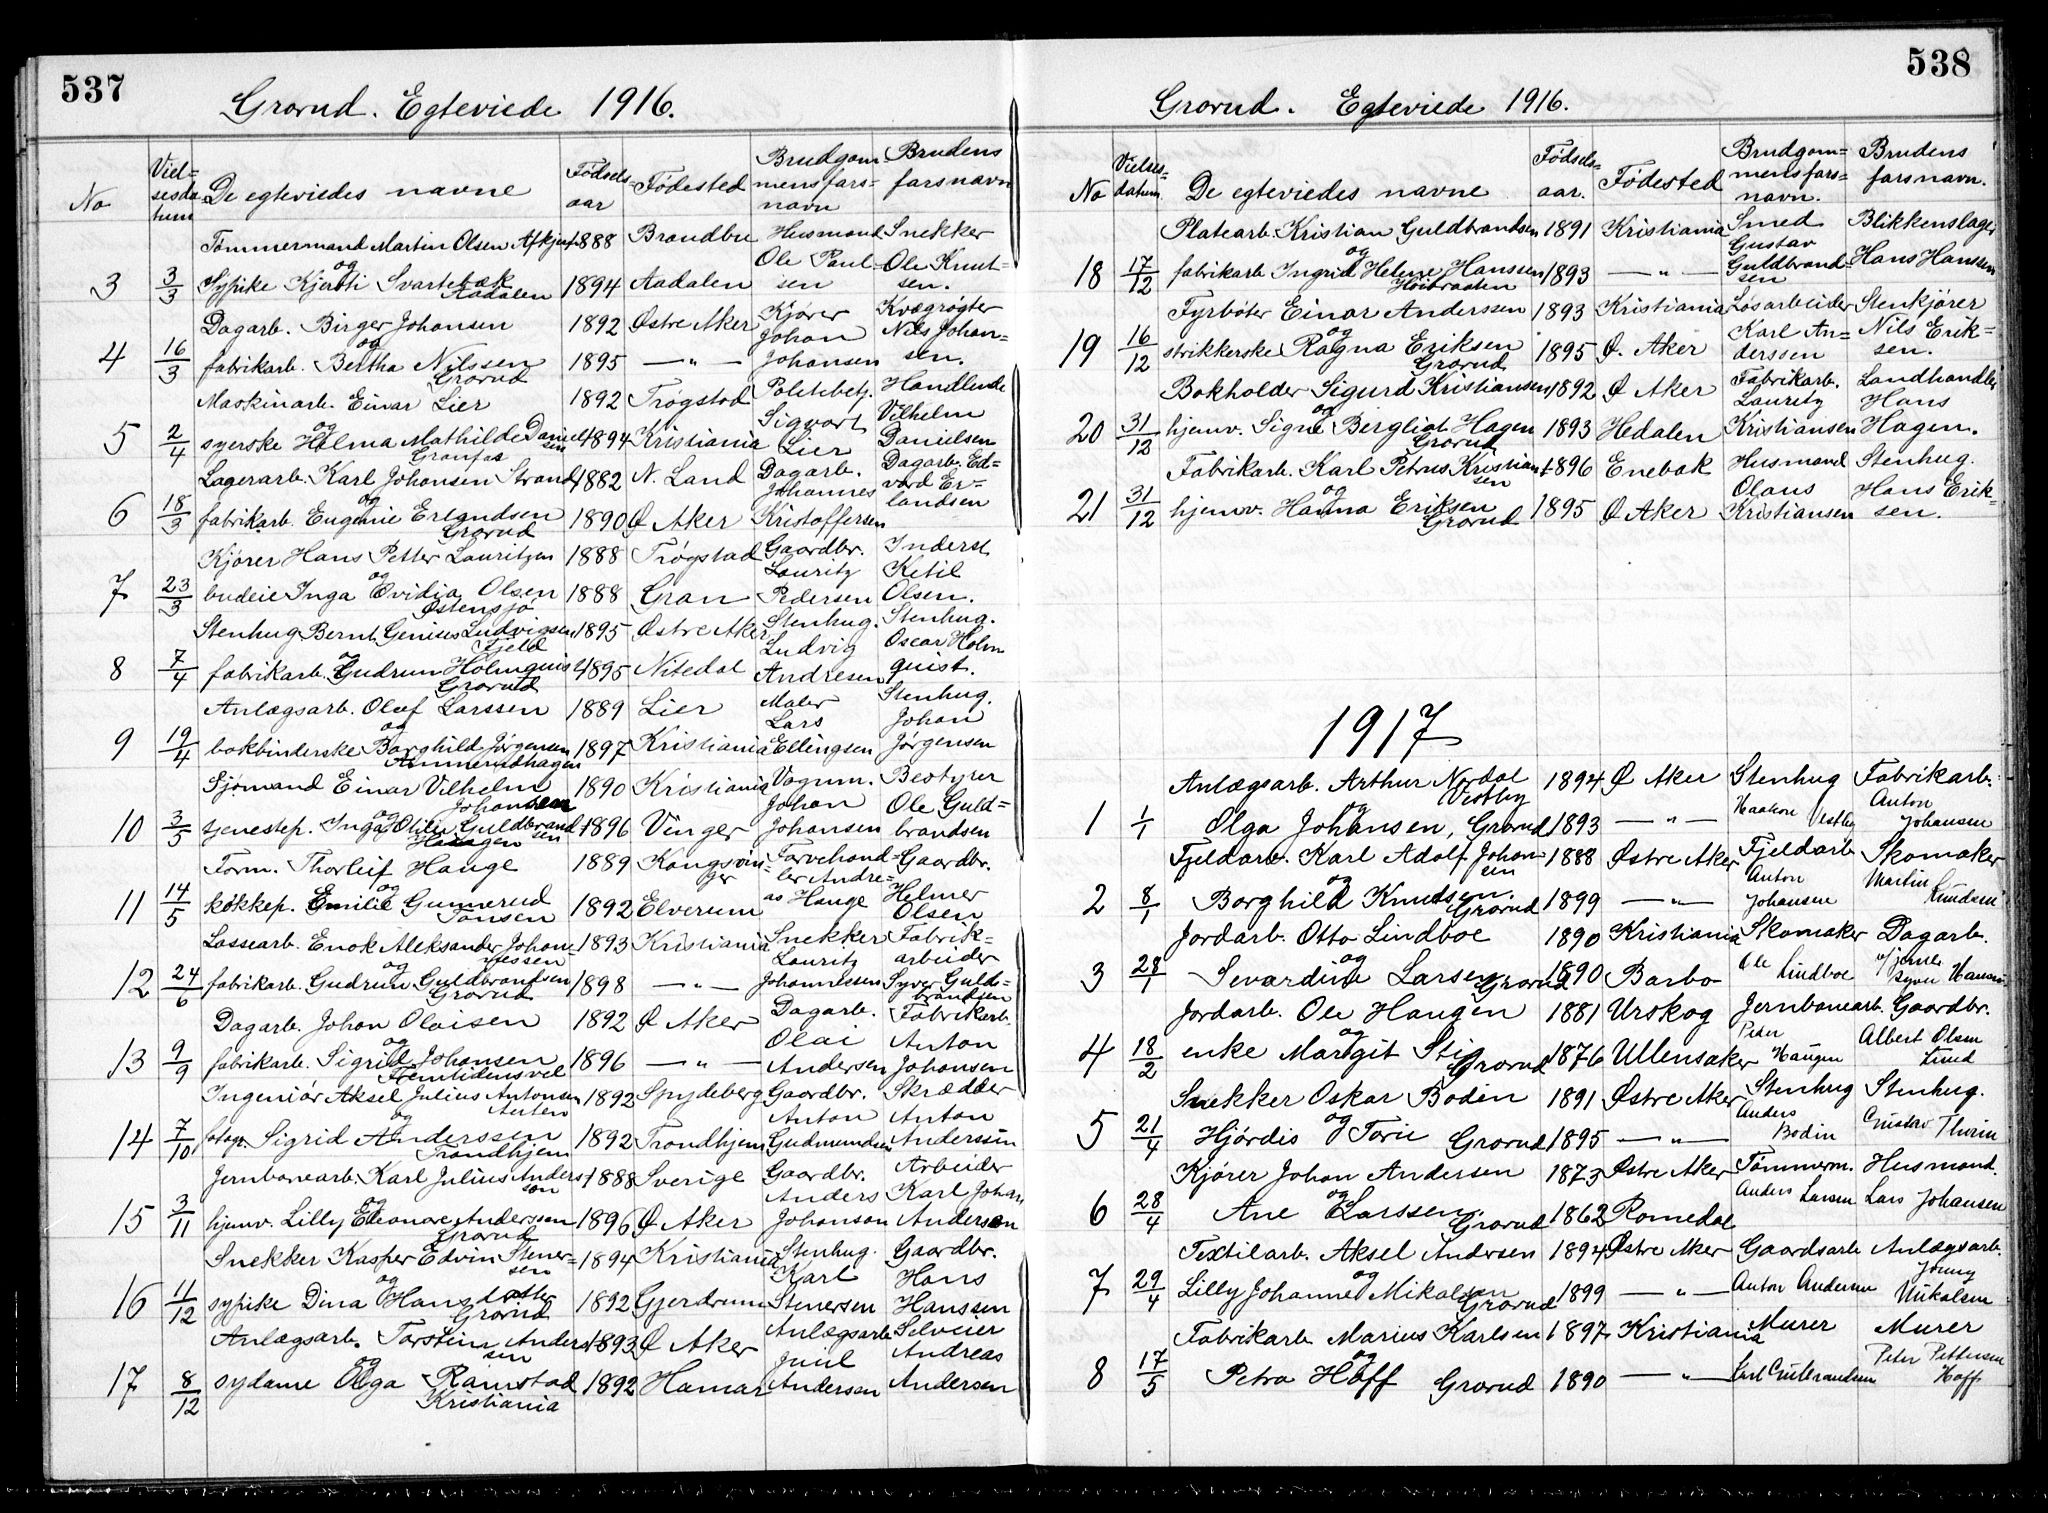 537
Grorud. Egteviede 1916.
No
Viel-
sesda-
tum
De egteviedes navne
Fødsels-
aar
Fødested
Brudgom-
mens fars-
navn
Brudens
farsnavn
Tømmermand Martin Olsen 1888 Brandbu Husmand Snekker
og Ole Paul- Ole Knut-
3 3/3 Sypike Kjersti Svartebæk 1894 Aadalen sen sen.
Aadalen
Dagarb. Birger Johansen 1892 Østre Aker Kjører Kvægrøgter
og Johan Nils Johan-
4 16/3 fabrikarb. Bertha Nilssen 1895 — " — Johansen sen.
Grorud
Maskinarb. Einar Lier 1892 Trøgstad Politibetj. Handlende
og Sigvart Vilhelm
5 2/4 syerske Holma Mathilde Daniel- 1894 Kristiania Lier Danielsen
sen
Lagerarb. Karl Johansen Strand 1882 N. Land Dagarb. Dagarb. Ed-
og Johannes vard Er-
6 18/3 fabrikarb. Eugenie Erlandsen 1890 Ø Aker Kristoffersen landsen
Grorud
Kjører Hans Petter Lauritzen 1888 Trøgstad Gaardbr. Inderst
og Lauritz Ketil
7 23/3 budeie Inga Ovidia Olsen 1888 Gran Pedersen Olsen.
Østensjø
Stenhug Bernt Genius Ludvigsen 1895 Østre Aker Stenhug. Stenhug.
Fjeld Ludvig Oscar Holm
8 7/4 fabrikarb. og Gudrun Holmquist 1895 Nitedal Andresen quist.
Grorud
Anlægsarb. Olaf Larssen 1889 Lier Maler Stenhug.
og Lars Johan
9 19/4 bokbinderske Borghild Jørgensen 1897 Kristiania Ellingsen Jørgensen
Ammerudhagen
Sjømand Einar Vilhelm 1890 Kristiania Vognm. Bestyrer
Johansen Johan Ole Guld-
10 3/5 tjenestep. og Inga Otilie Guldbrand- 1896 Vinger Johansen brandsen
sen
Form. Thorleif Hauge 1889 Kongsvin- Farvehand- Gaardbr.
og ger ler Andre-
11 14/5 kokkep. Emilie Gunnerud 1892 Elverum as Hauge Helmer
Tonsen Olsen
Lassearb. Enok Aleksander Johan- 1893 Kristiania Snekker Fabrik-
nessen Lauritz arbeider
12 24/6 fabrikarb. og Gudrun Guldbrandsen 1898 — " — Johannessen Syver Guld-
Grorud brandsen
Dagarb. Johan Olaisen 1892 Ø Aker Dagarb. Fabrikarb.
og Olai Anton
13 9/9 fabrikarb. Sigrid Johansen 1896 — " — Andersen Johansen
Fremtidensvel
Ingeniør Aksel Julius Antonsen 1892 Spydeberg Gaardbr. Skrædder
og Anton Anton
14 7/10 fotogr. Sigrid Anderssen 1892 Trondhjem Gudmundsen Anderssen
Trondhjem
Jernbanearb. Karl Julius Anders- 1888 Sverige Gaardbr. Arbeider
son og Anders Karl Johan
15 3/11 hjemv. Lilly Eleonore Anderssen 1896 Ø Aker Johanson Anderson
Grorud
Snekker Kasper Edvin Stener- 1894 Kristiania Stenhug. Gaardbr.
sen og Karl Hans
16 11/12 sypike Dina Hansdatter 1892 Gjerdrum Stenersen Hanssen
Grorud
Anlægsarb. Torstein Anders- 1893 Ø Aker Anlægsarb Selveier
sen og Juul Andreas
17 8/12 sydame Olga Ramstad 1892 Hamar Andersen Andersen
Kristiania
538
Grorud. Egteviede 1916.
No
Vielses-
datum.
De egteviedes navne
Fødsels-
aar.
Fødested
Brudgom-
mens fars-
navn.
Brudens
farsnavn.
Platearb. Kristian Guldbrandsen 1891 Kristiania Smed Blikkenslager
og Gustav
18 17/12 fabrikarb Ingrid Helene Hanssen 1893 — " — Guldbrand- Hans Hanssen
Høibraaten sen
Fyrbøter Einar Anderssen 1893 Kristiania Løsarbeider Stenkjører
og Karl An- Nils Erik-
19 16/12 strikkerske Ragna Eriksen 1895 Ø. Aker derssen sen.
Grorud
Bokholder Sigurd Kristiansen 1892 Ø Aker Fabrikarb. Landhandler
og Lauritz Hans
20 31/12 hjemv. Signe Bergliot Hagen 1893 Hedalen Kristiansen Hagen.
Grorud
Fabrikarb. Karl Petrus Kristian- 1896 Enebak Husmand Stenhug.
og sen Olaus Hans Erik-
21 31/12 hjemv. Hanna Eriksen 1895 Ø Aker Kristiansen sen.
Grorud
1917
Anlægsarb. Arthur Nordal 1894 Ø Aker Stenhug Fabrikarb.
Vestby Haakon Vestby Anton
1 1/1 og Olga Johansen, Grorud 1893 — " — Johansen
Fjeldarb. Karl Adolf Johan- 1888 Østre Aker Fjeldarb Skomaker
sen Anton Martin
2 8/1 og Borghild Knudsen. 1899 — " — Johansen Knudsen
Grorud
Jordarb. Otto Lindboe 1890 Kristiania Skomaker Dagarb.
og Ole Lindboe
3 28/1 Sevardine Larsen Grorud 1890 Barbo
Jordarb. Ole Haugen 1881 Urskog Jernbanearb. Gaardbr.
og Peder Albert Olsen
4 18/2 enke Margit Stig 1876 Ullensaker Haugen Lund
Grorud
Snekker Oskar Bodin 1891 Østre Aker Stenhug Stenhug.
og Anders Gustav Thorin
5 21/4 Hjørdis Torie Grorud 1895 — " — Bodin
Kjører Johan Andersen 1873 Østre Aker Tømmerm. Husmand.
og Anders Larsen Lars Johansen
6 28/4 Ane Larssen. Grorud 1862 Romedal
Textilarb. Aksel Andersen 1894 Østre Aker Gaardsarb Anlægsarb.
og Anton Andersen
7 29/4 Lilly Johanne Mikalsen 1899 — " — Mikalsen
Grorud
Fabrikarb Marius Karlsen 1897 Kristiania Murer Murer
og Peter Pettersen
8 17/5 Petra Hoff Grorud 1890 — " — Karl Gulbrandsen Hoff